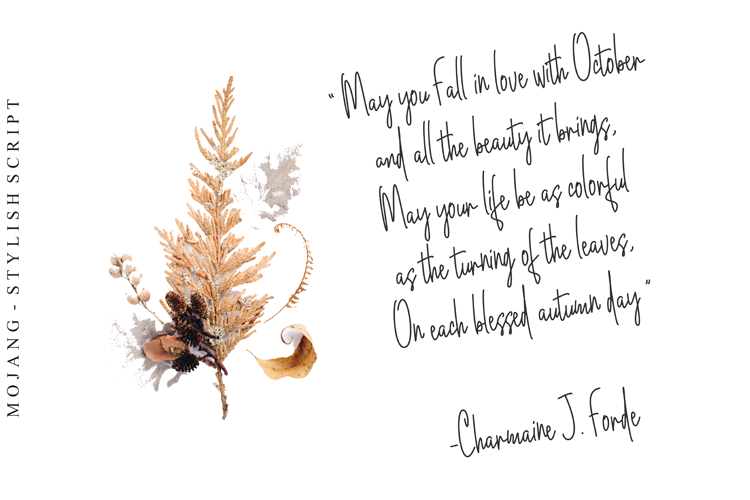 MOJANG - STYLISH SCRIPT
"May you Fall in love with October
and all the beauty it brings,
May your life be as colorful
as the turning of the leaves,
On each blessed autumn day"
-Charmaine J. Forde